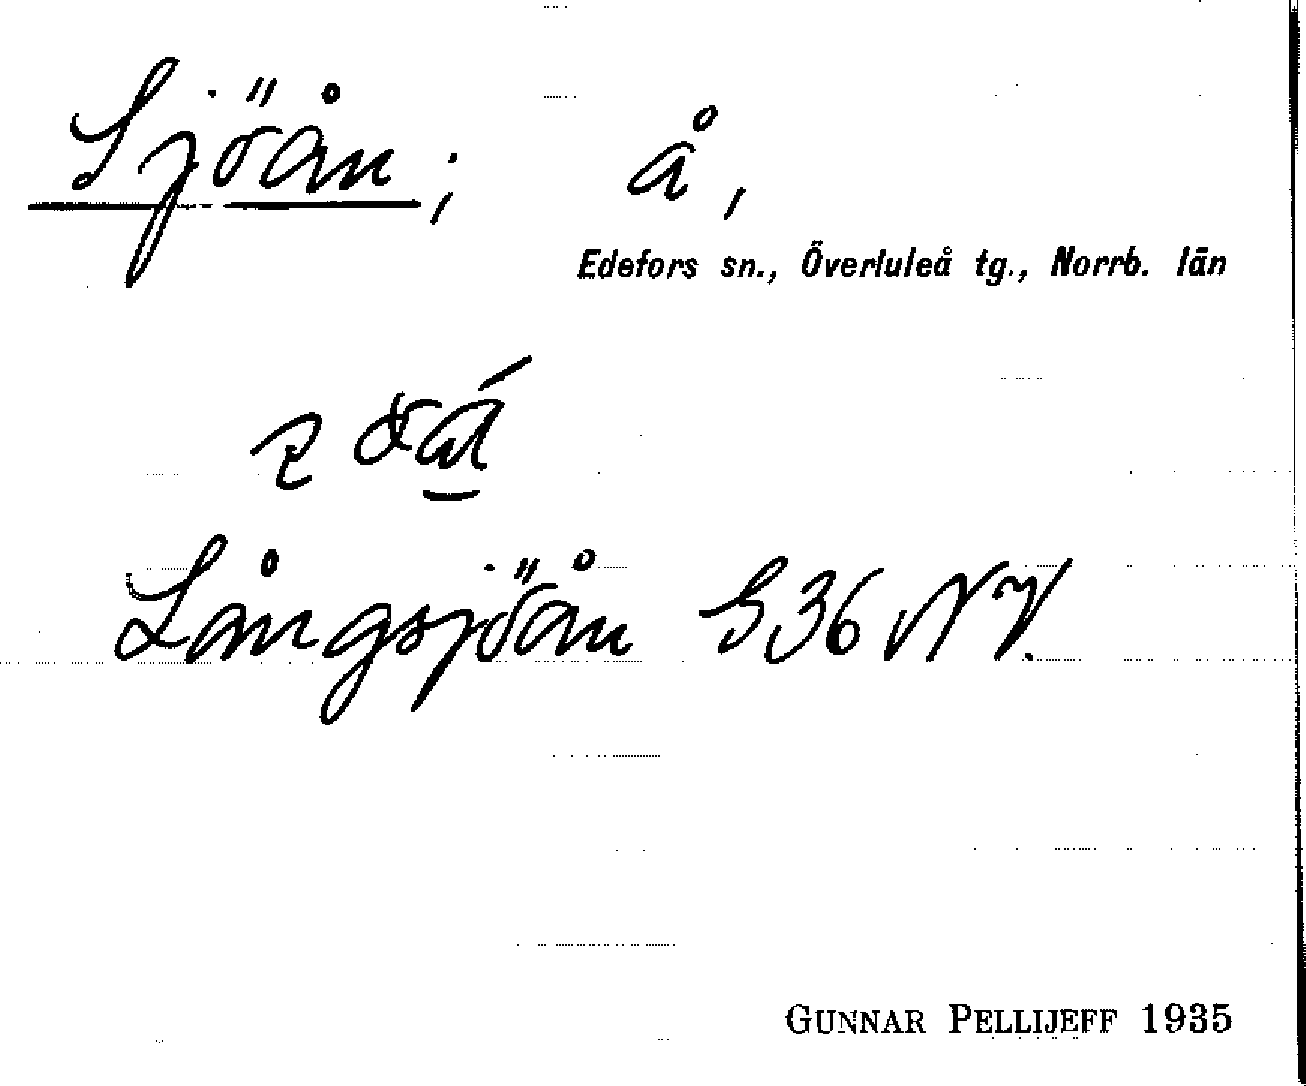 Sjöån; å,
Edefors sn., Överluleå tg., Norrb. län
Långsjöån G36 NV.
GUNNAR PELLIJEFF 1935